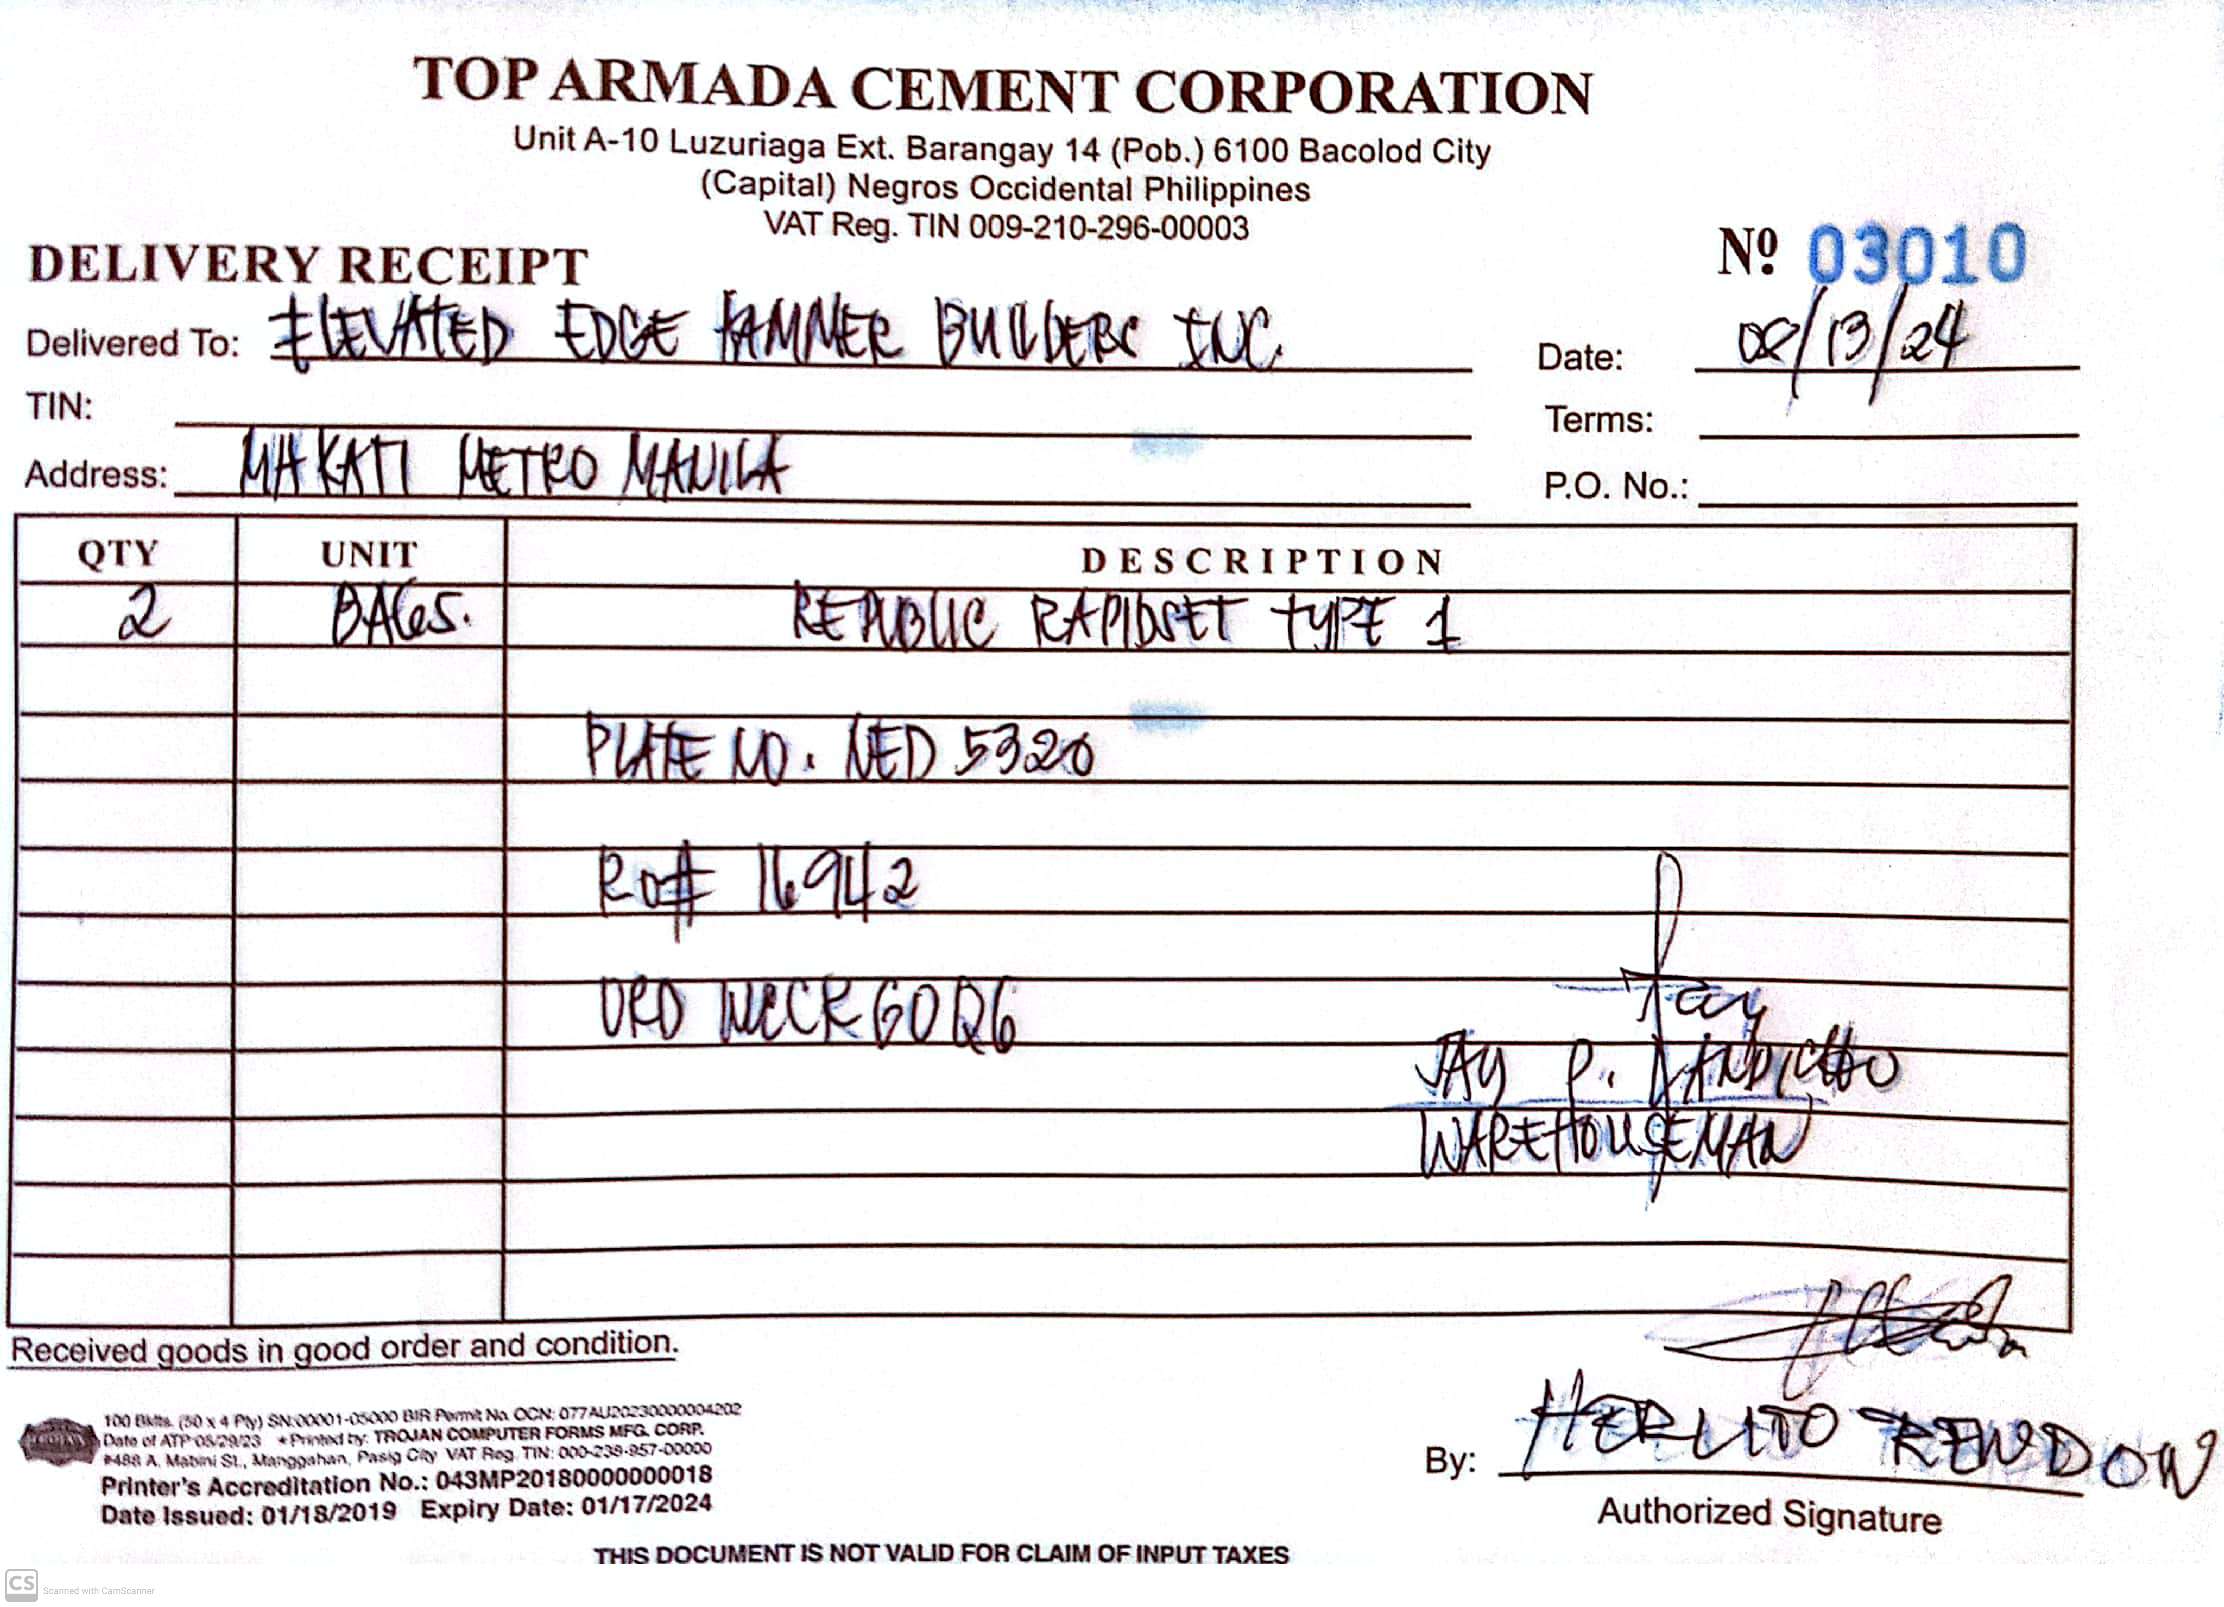 TOP ARMADA CEMENT CORPORATION
Unit A-10 Luzuriaga Ext. Barangay 14 (Pob.) 6100 Bacolod City
(Capital) Negros Occidental Philippines
VAT Reg. TIN 009-210-296-00003
DELIVERY RECEIPT
Nº 03010
Delivered To: ELEVATED EDGE HAMMER BUILDERS INC.
Date: 08/13/24
TIN:
Terms:
Address: MAKATI METRO MANILA
P.O. No.:
QTY UNIT DESCRIPTION
2 BAGS. REPUBLIC RAPIDSET TYPE 1
PLATE NO. NED 5320
RO# 16942
ORD
JAY P.
WAREHOUSEMAN
Received goods in good order and condition.
100 Bklts. (50 x 4 Ply) SN:00001-05000 BIR Permit No. OCN: 077AU20230000004202
Date of ATP 08/29/23 * Printed by: TROJAN COMPUTER FORMS MFG. CORP.
#488 A. Mabini St., Manggahan, Pasig City VAT Reg. TIN: 000-239-957-00000
Printer's Accreditation No.: 043MP20180000000018
Date Issued: 01/18/2019 Expiry Date: 01/17/2024
By: HERLITO RENDON
Authorized Signature
THIS DOCUMENT IS NOT VALID FOR CLAIM OF INPUT TAXES
CS Scanned with CamScanner